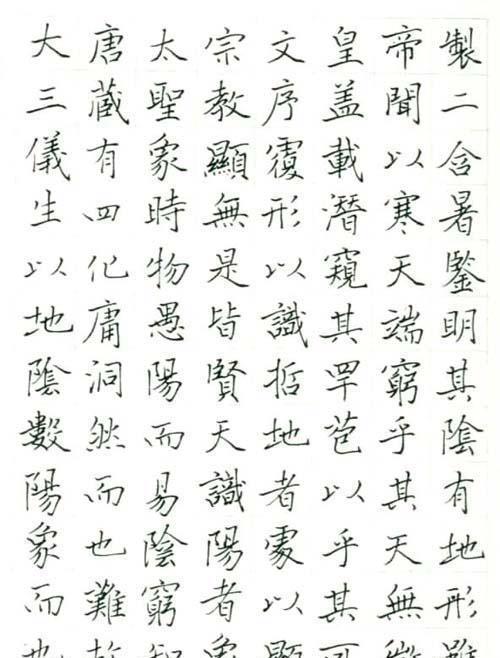 大唐太宗文皇帝製
三藏聖教序盖聞二
儀有象顯覆載以含
生四時無形潛寒暑
以化物是以窺天鑒
地庸愚皆識其端明
陰洞陽賢哲罕窮其
數然而天地苞乎陰
陽而易識者以其有
象也陰陽處乎天地
而難窮者以其無形
也故知象顯可徵雖